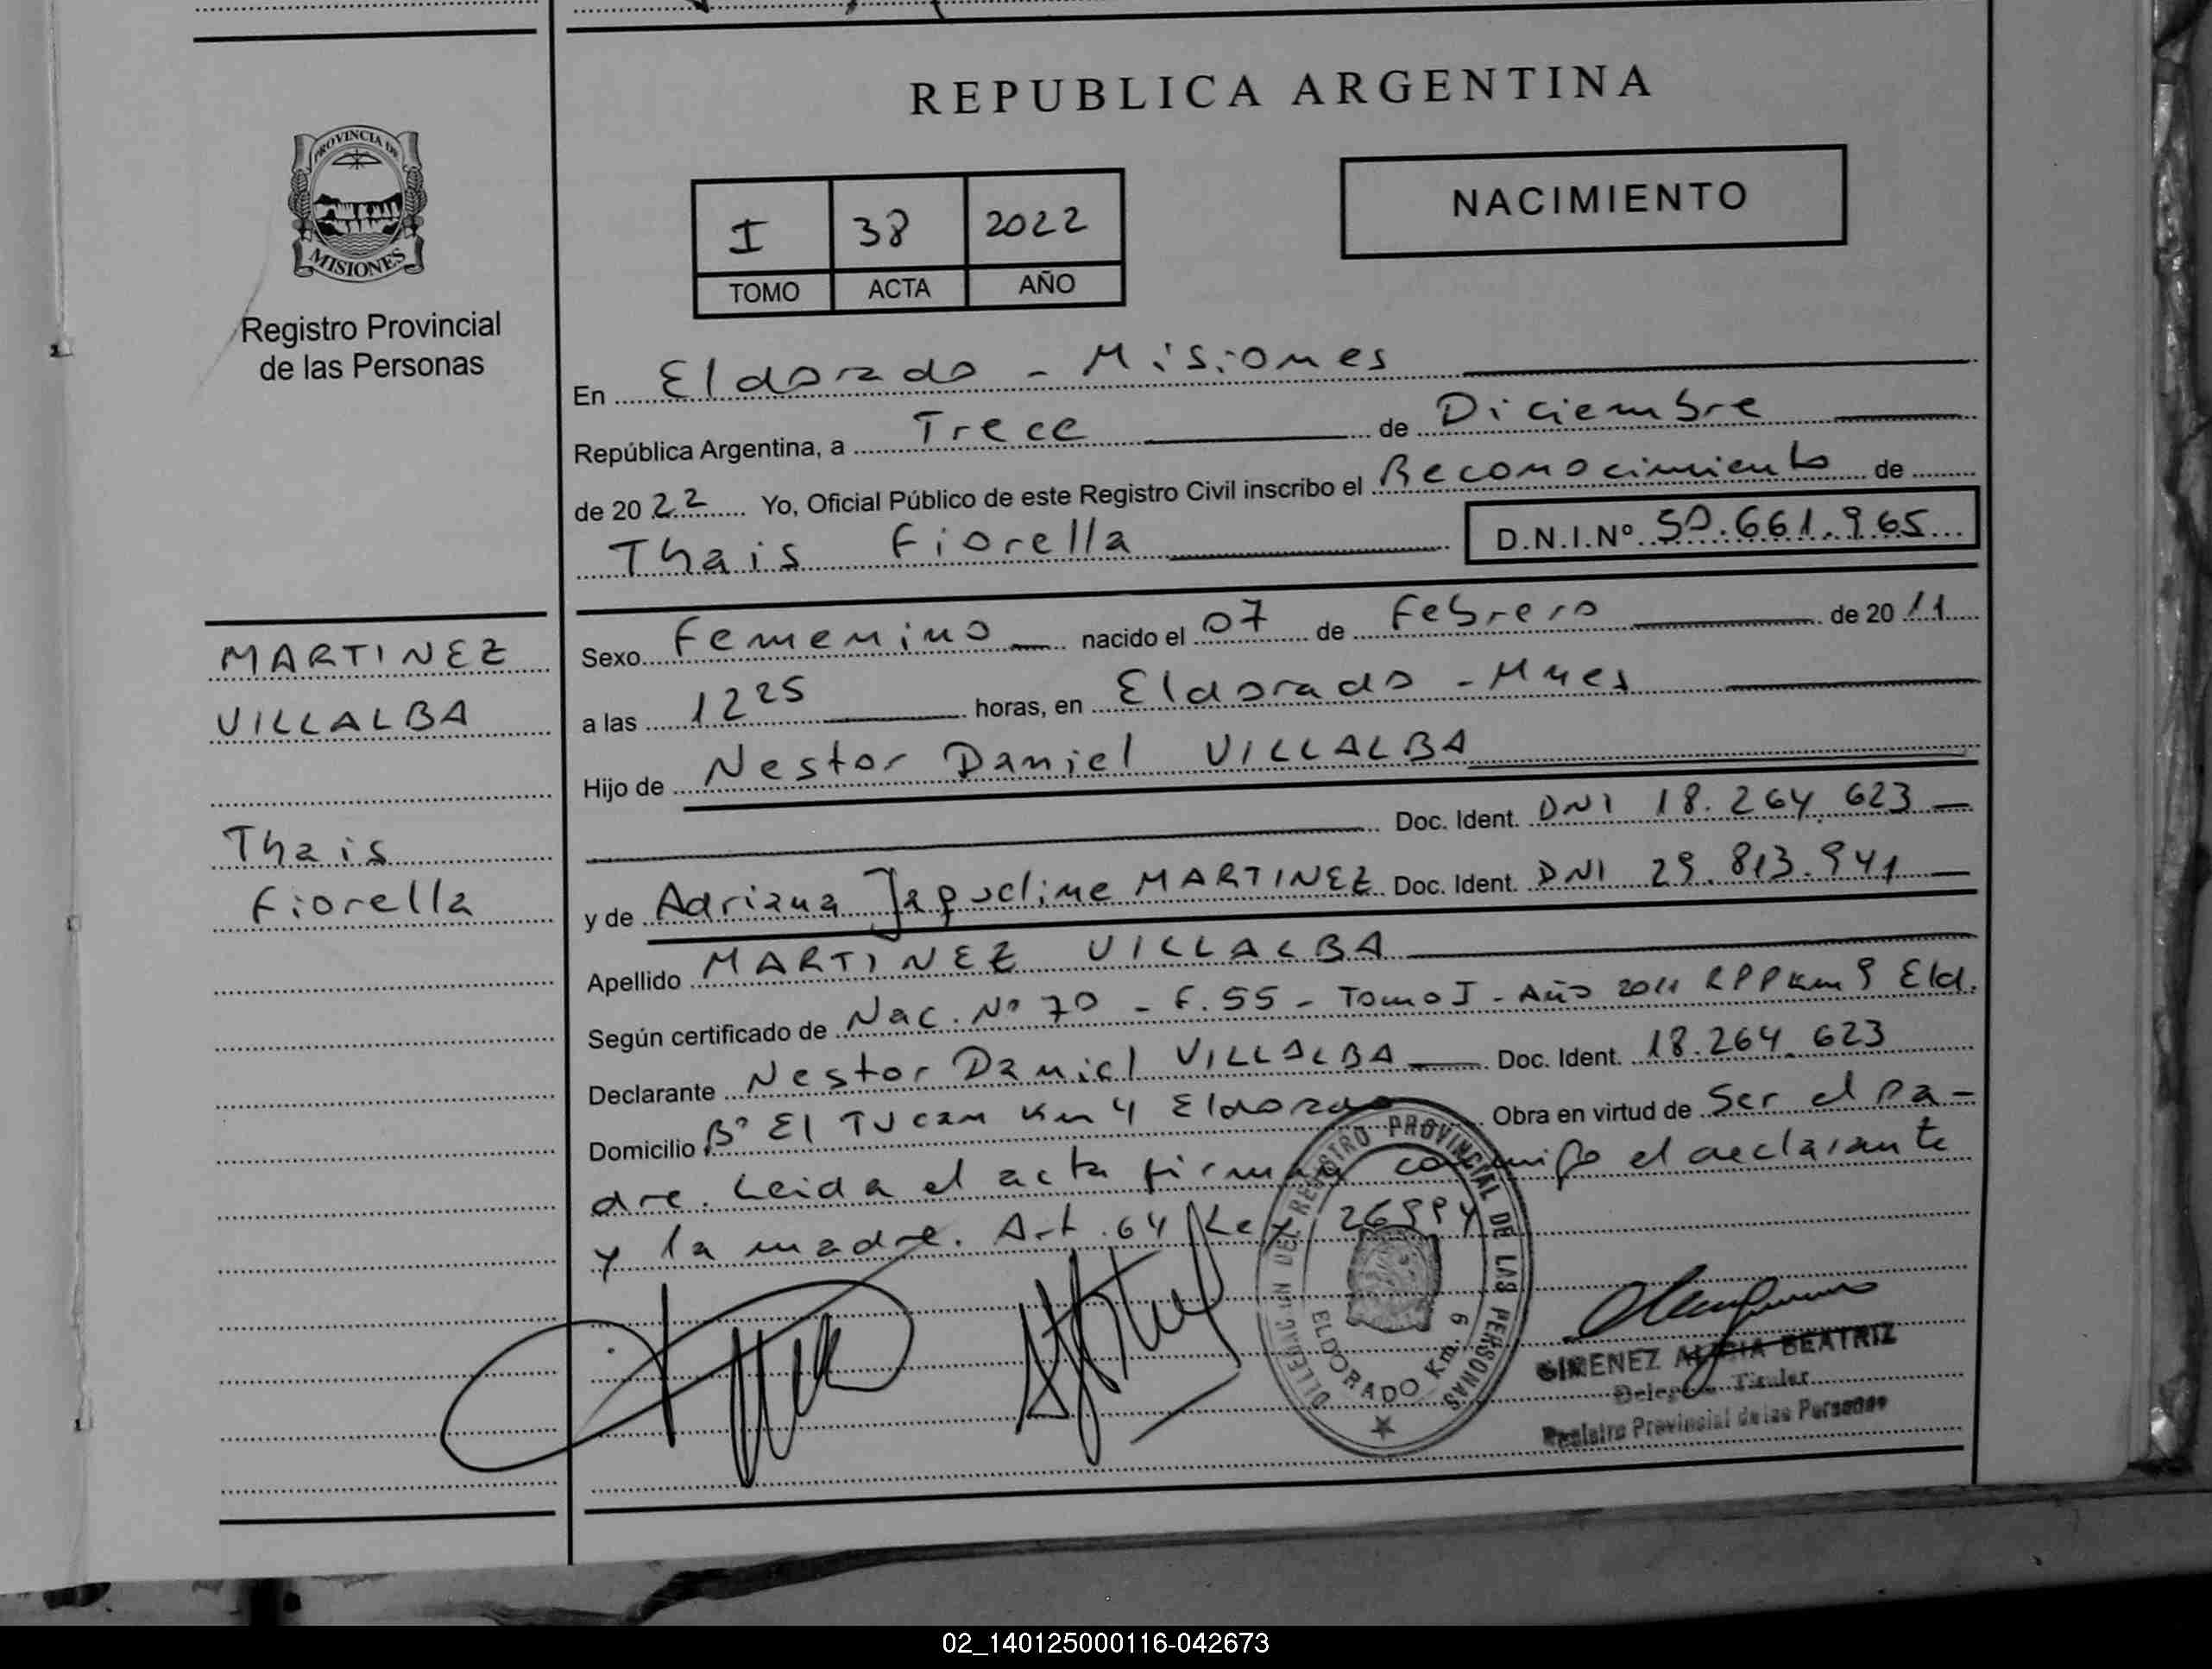 REPUBLICA ARGENTINA
PROVINCIA DE
MISIONES
Registro Provincial
de las Personas
I 38 2022
TOMO ACTA AÑO
NACIMIENTO
En Eldorado - Misiones
República Argentina, a Trece de Diciembre
de 2022 Yo, Oficial Público de este Registro Civil inscribo el Reconocimiento de
Thais Fiorella D.N.I.Nº 50.661.965
MARTINEZ
VILLALBA
Thais
Fiorella
Sexo Femenino nacido el 07 de Febrero de 2011
a las 12 25 horas, en Eldorado - Mnes
Hijo de Nestor Daniel VILLALBA
Doc. Ident. DNI 18.264.623
y de Adriana Jaqueline MARTINEZ Doc. Ident. DNI 29.813.941
Apellido MARTINEZ VILLALBA
Según certificado de Nac. Nº 70 - F. 55 - Tomo I - Año 2011 RPP Km 9 Eld.
Declarante Nestor Daniel VILLALBA Doc. Ident. 18.264.623
Domicilio Bº El Tucan Km 4 Eldorado Obra en virtud de Ser el Pa-
dre. Leida el acta firman conmigo el declarante
y la madre. Art. 64 Ley 26994
DELEGACION DEL REGISTRO PROVINCIAL DE LAS PERSONAS
ELDORADO Km. 6
GIMENEZ ALICIA BEATRIZ
Delegada Titular
Registro Provincial de las Personas
02_140125000116-042673